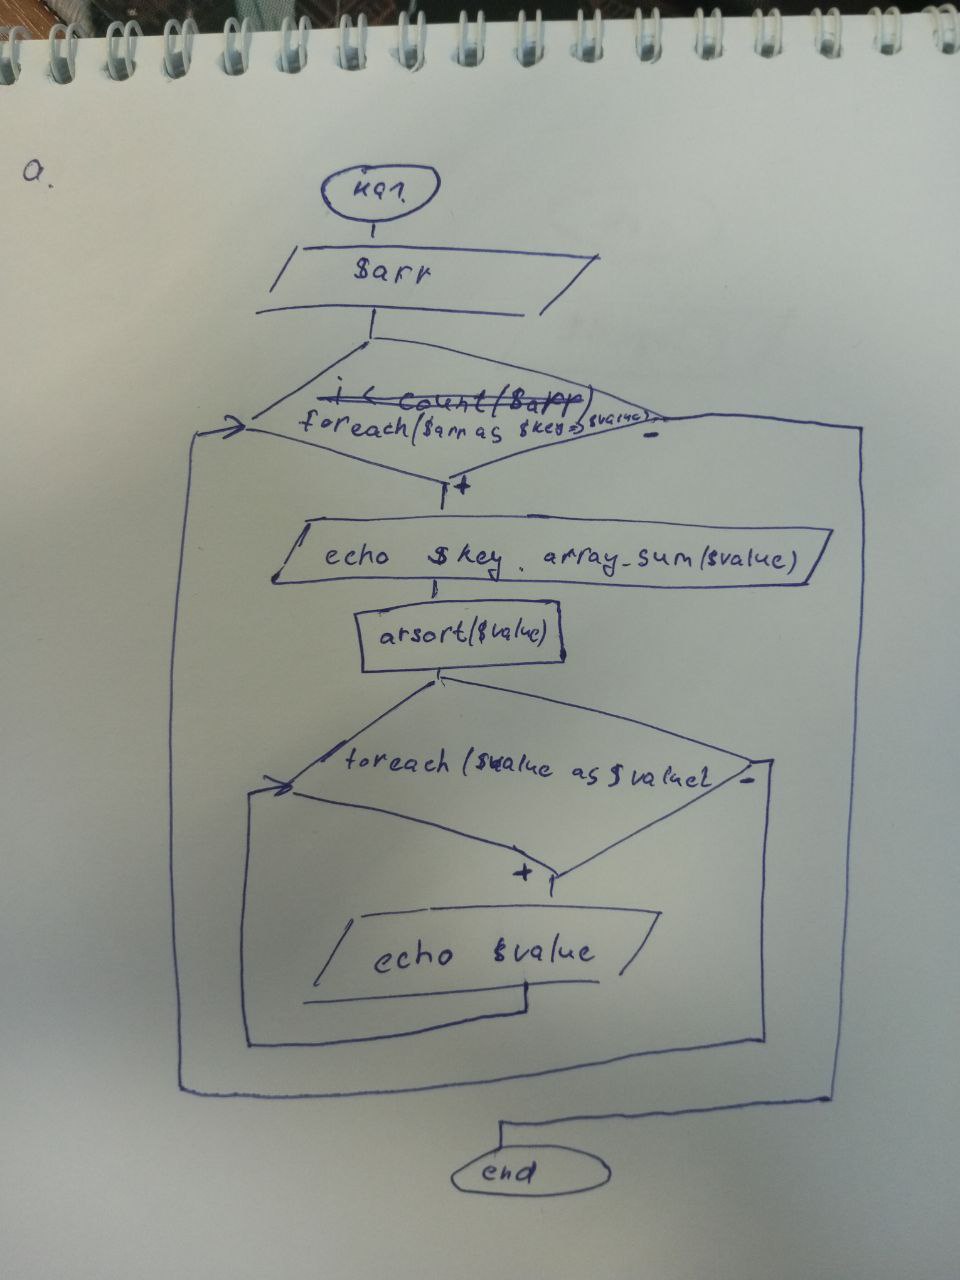 a.
нач.
$arr
i < count($arr)
foreach($arr as $key=>$value)
-
+
echo $key. array_sum($value)
arsort($value)
foreach ($value as $value)
-
+
echo $value
end